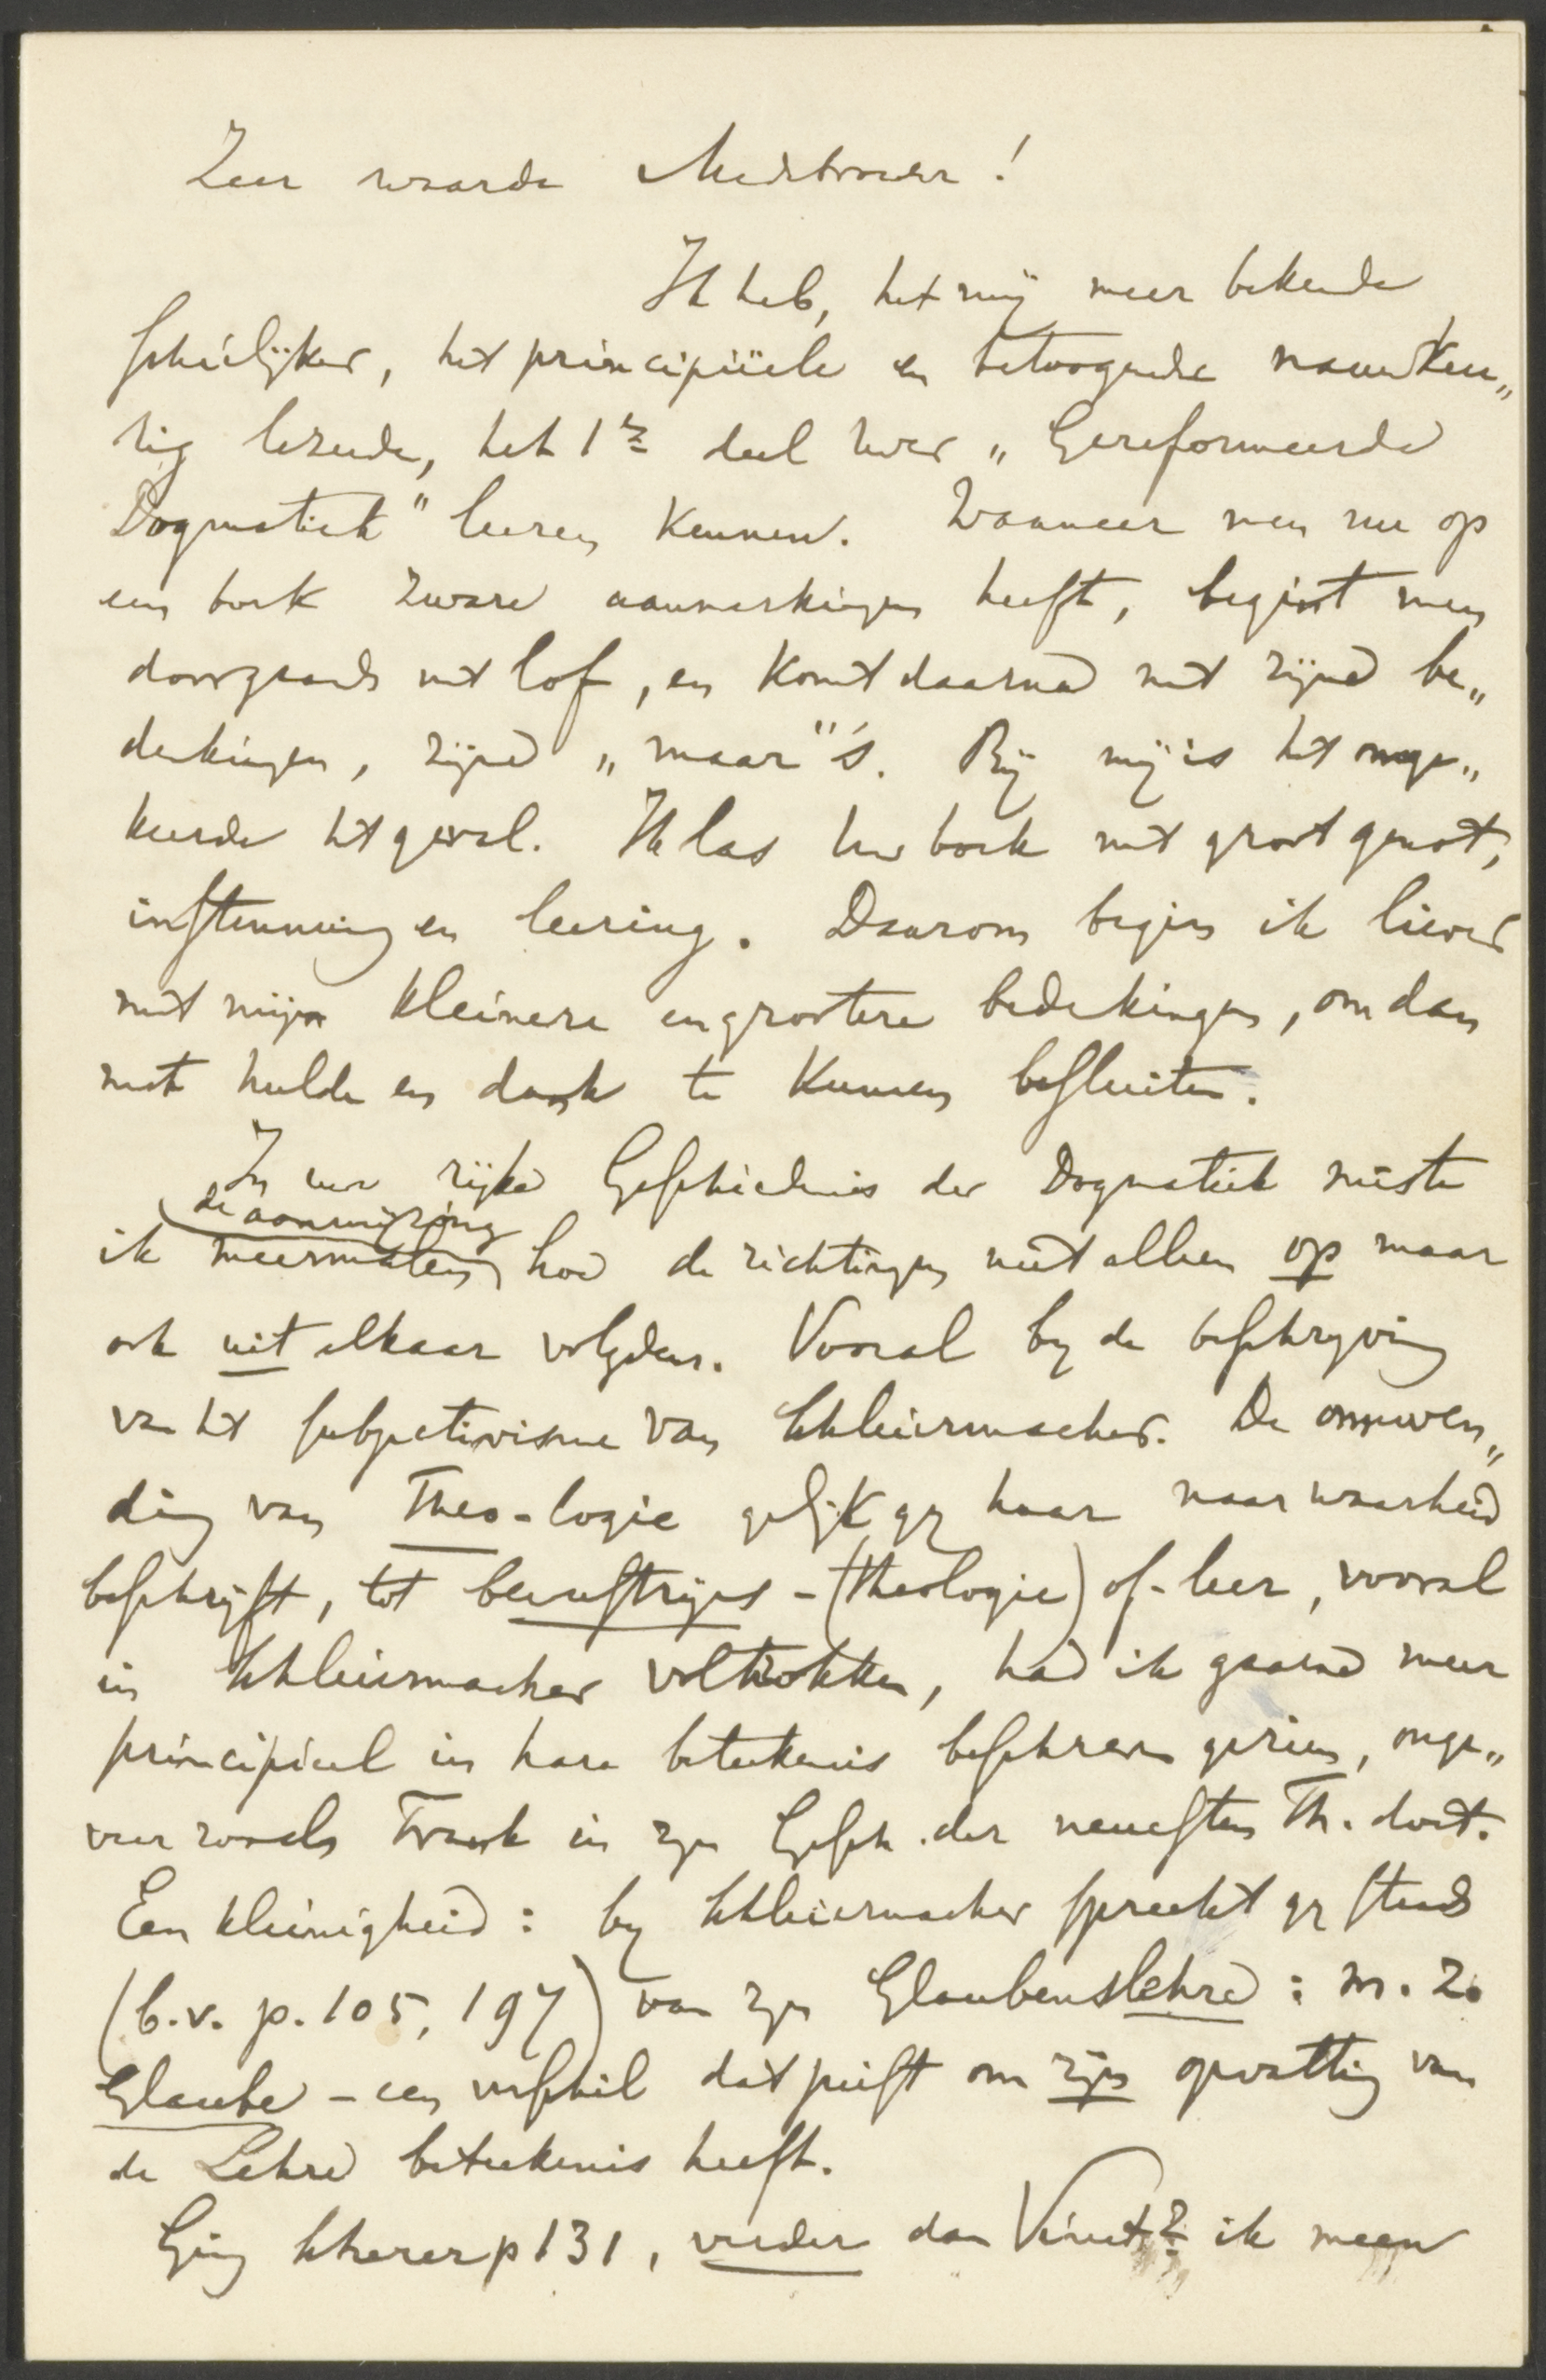 Zeer waarde Medebroeder!
Ik heb, het mij meer bekende
schielijker, het principiëele en betoogende nauwkeu„
rig lezende, het 1e deel uwer „Gereformeerde
Dogmatiek" leeren kennen. Wanneer men nu op
een boek zware aanmerkingen heeft, begint men
doorgaands met lof, en komt daarna met zijne be„
denkingen, zijne „maar"'s. Bij mij is het omge„
keerde het geval. Ik las uw boek met groot genot,
instemming en leering. Daarom begin ik liever
met mijn kleinere en grootere bedenkingen, om dan
met hulde en dank te kunnen besluiten.
In uw rijke Geschiedenis der Dogmatiek miste
de aanwijzing
ik meermalen hoe de richtingen niet alleen op maar
ook uit elkaar volgden. Vooral by de beschryving
van het subjectivisme van Schleiermacher. De omwen„
ding van Theo-logie gelijk gy haar naar waarheid
beschrijft, tot bewustzijns-(theologie) of-leer, vooral
in Schleiermacher voltrokken, had ik gaarne meer
principieel in hare beteekenis beschreven gezien, onge„
veer zooals Frank in zyn Gesch. der neuesten Th. doet.
Een kleinigheid: by Schleiermacher spreekt gy steeds
(b.v. p. 105, 197) van zyn Glaubenslehre: m. Zo
Glaube - een verschil dat juist om zijn opvatting van
de Lehre beteekenis heeft.
Ging Scherer p 131, verder dan Vinet? ik meen